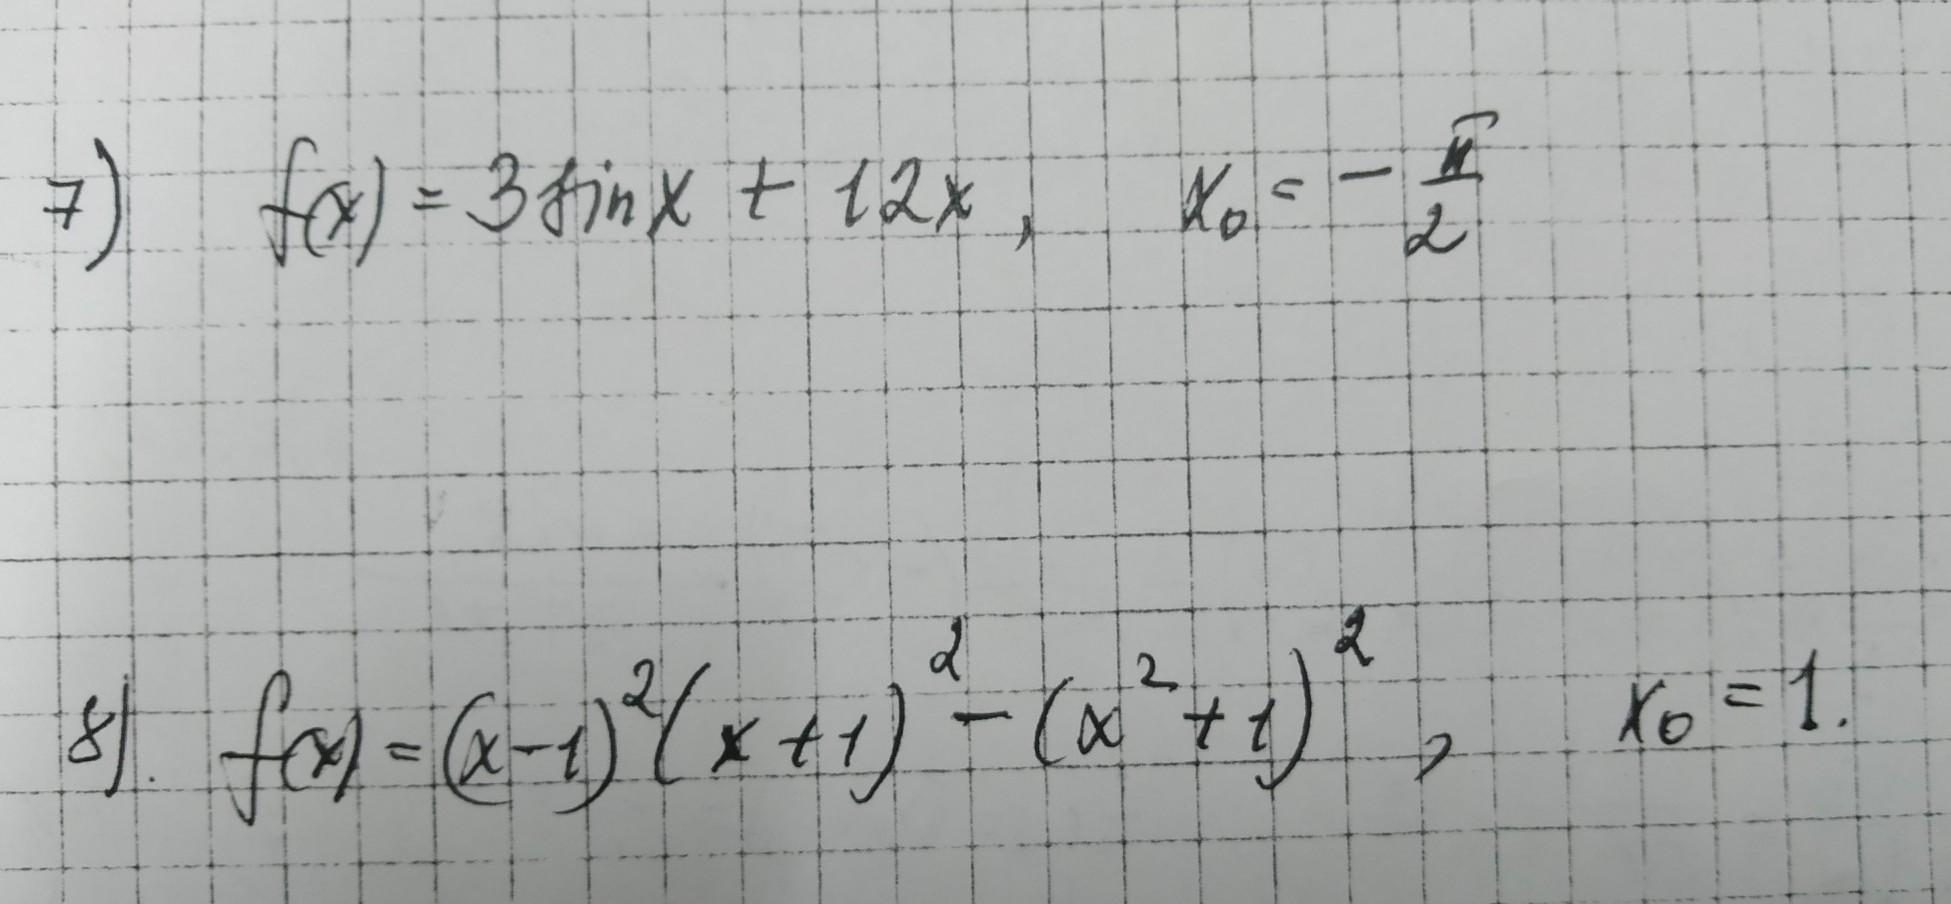 7) f(x) = 3 sin x + 12x, x₀ = - π/2
8). f(x) = (x-1)²(x+1)² - (x²+1)², x₀ = 1.